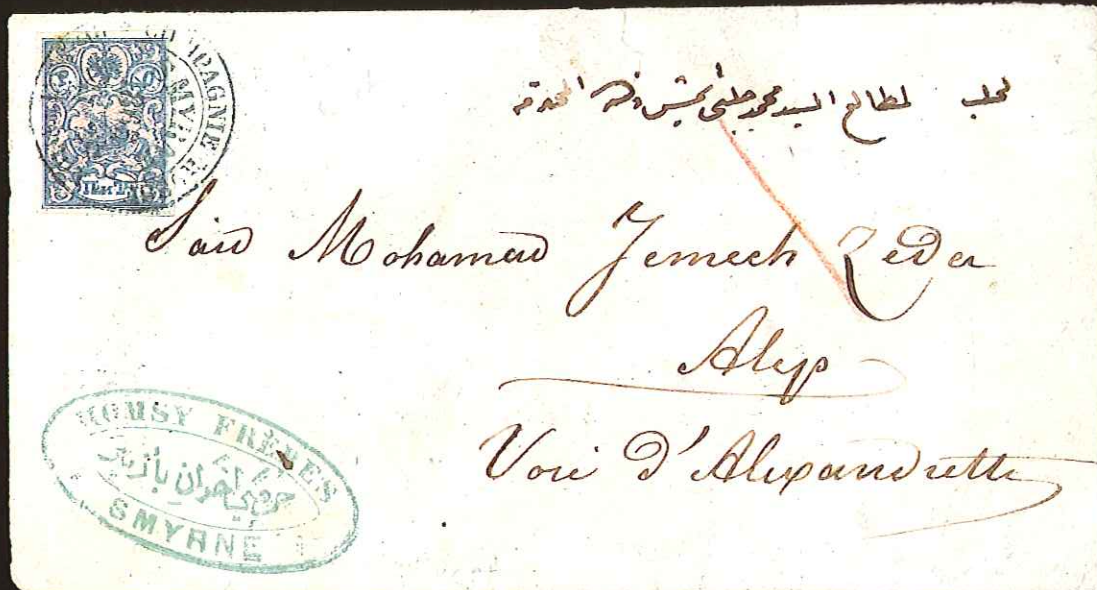 COMPAGNIE
لحلب لمطالع السيد محمد جلبي
Said Mohamad Jemech Zeda
Alep
Voie d'Alexandrette
HOMSY FRÈRES
حمصي اخوان بازمير
SMYRNE